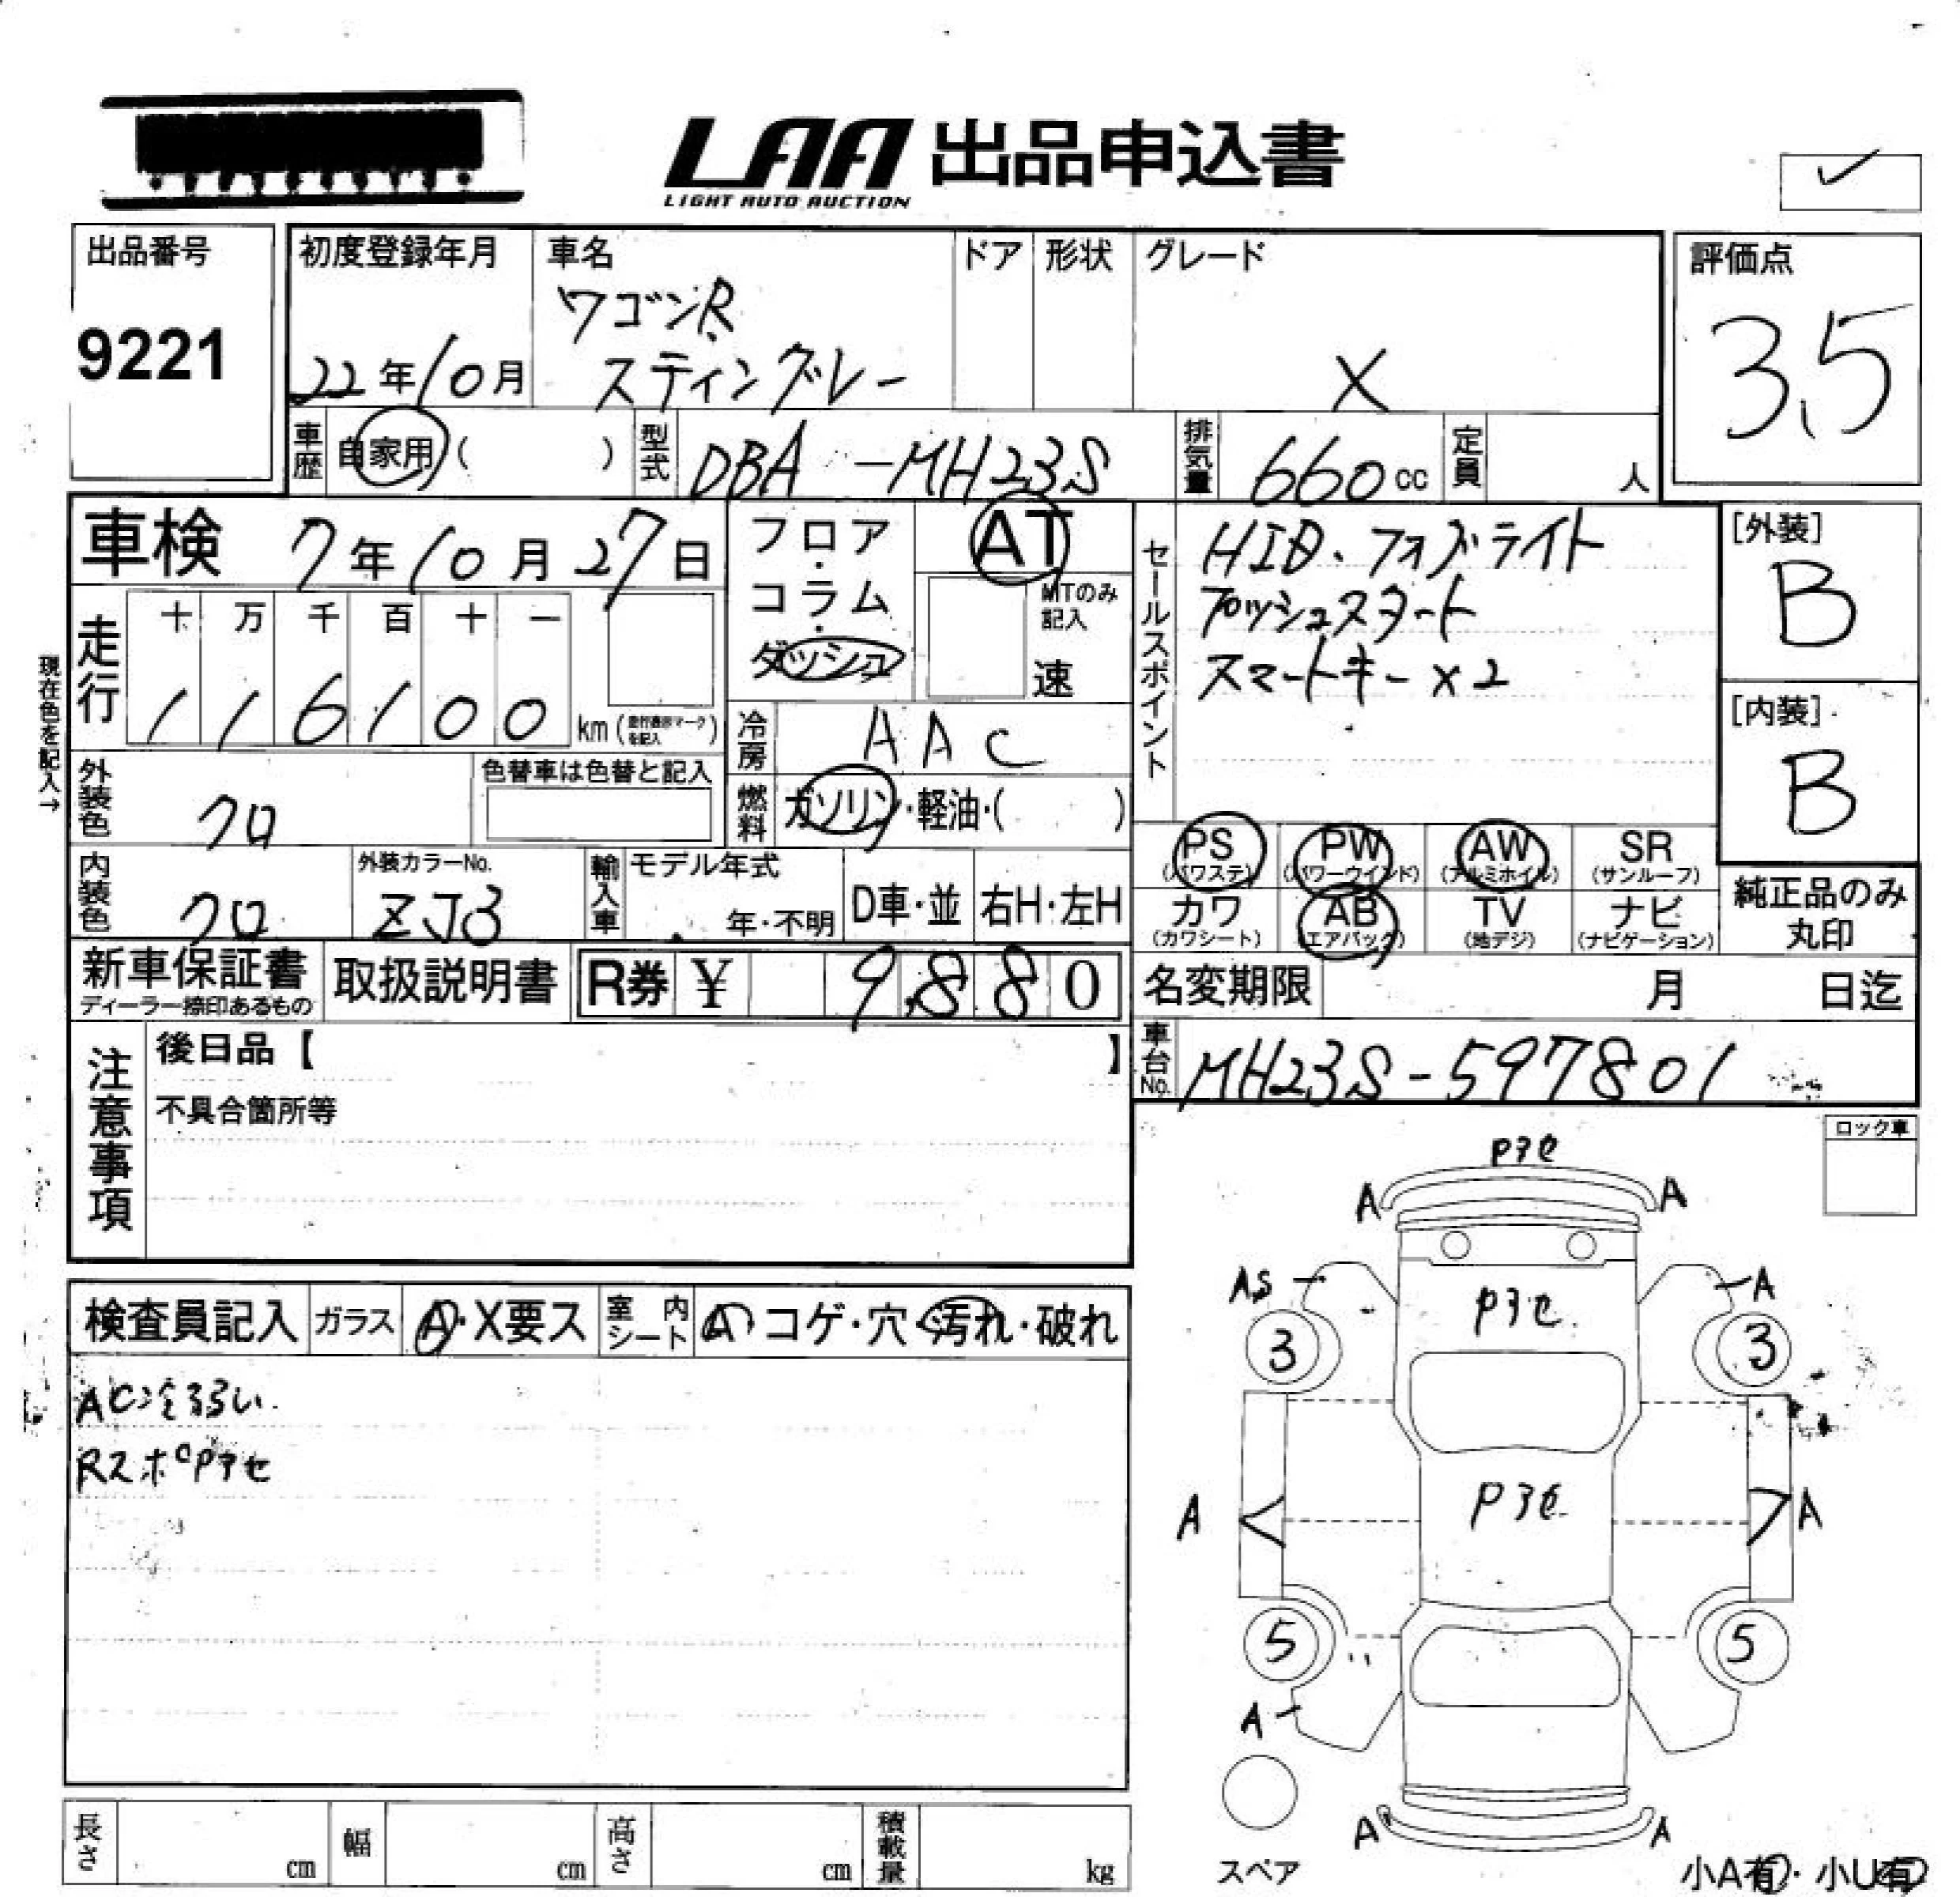 LAA 出品申込書
LIGHT AUTO AUCTION
✓
出品番号
9221
初度登録年月
22年10月
車名
ワゴンR
スティングレー
ドア
形状
グレード
X
評価点
3.5
車歴
自家用( )
型式
DBA-MH23S
排気量
660cc
定員
人
車検 7年10月27日
フロア・コラム・ダッシュ
AT
MTのみ記入
速
セールスポイント
HID・フォグライト
プッシュスタート
スマートキー×2
[外装]
B
[内装]
B
現在色を記入→
走行
十 万 千 百 十 一
1 1 6 1 0 0 km (走行表示マークを記入)
冷房
AAC
外装色
クロ
色替車は色替と記入
燃料
ガソリン・軽油・( )
内装色
クロ
外装カラーNo.
ZJ3
輸入車
モデル年式
年・不明
D車・並
右H・左H
PS
(パワステ)
PW
(パワーウインド)
AW
(アルミホイル)
SR
(サンルーフ)
カワ
(カワシート)
AB
(エアバック)
TV
(地デジ)
ナビ
(ナビゲーション)
純正品のみ
丸印
新車保証書
ディーラー捺印あるもの
取扱説明書
R券 ¥ 9,880
名変期限 月 日迄
車台No.
MH23S-597801
注意事項
後日品【 】
不具合箇所等
ロック車
検査員記入
ガラス
A・X要ス
室内シート
A・コゲ・穴・汚れ・破れ
AC冷弱い
RスポPアセ
Pアセ
A A
AS A
Pアセ
3 3
Pアセ
A A
5 5
A
A A
スペア
長さ cm
幅 cm
高さ cm
積載量 kg
小A有・小U有